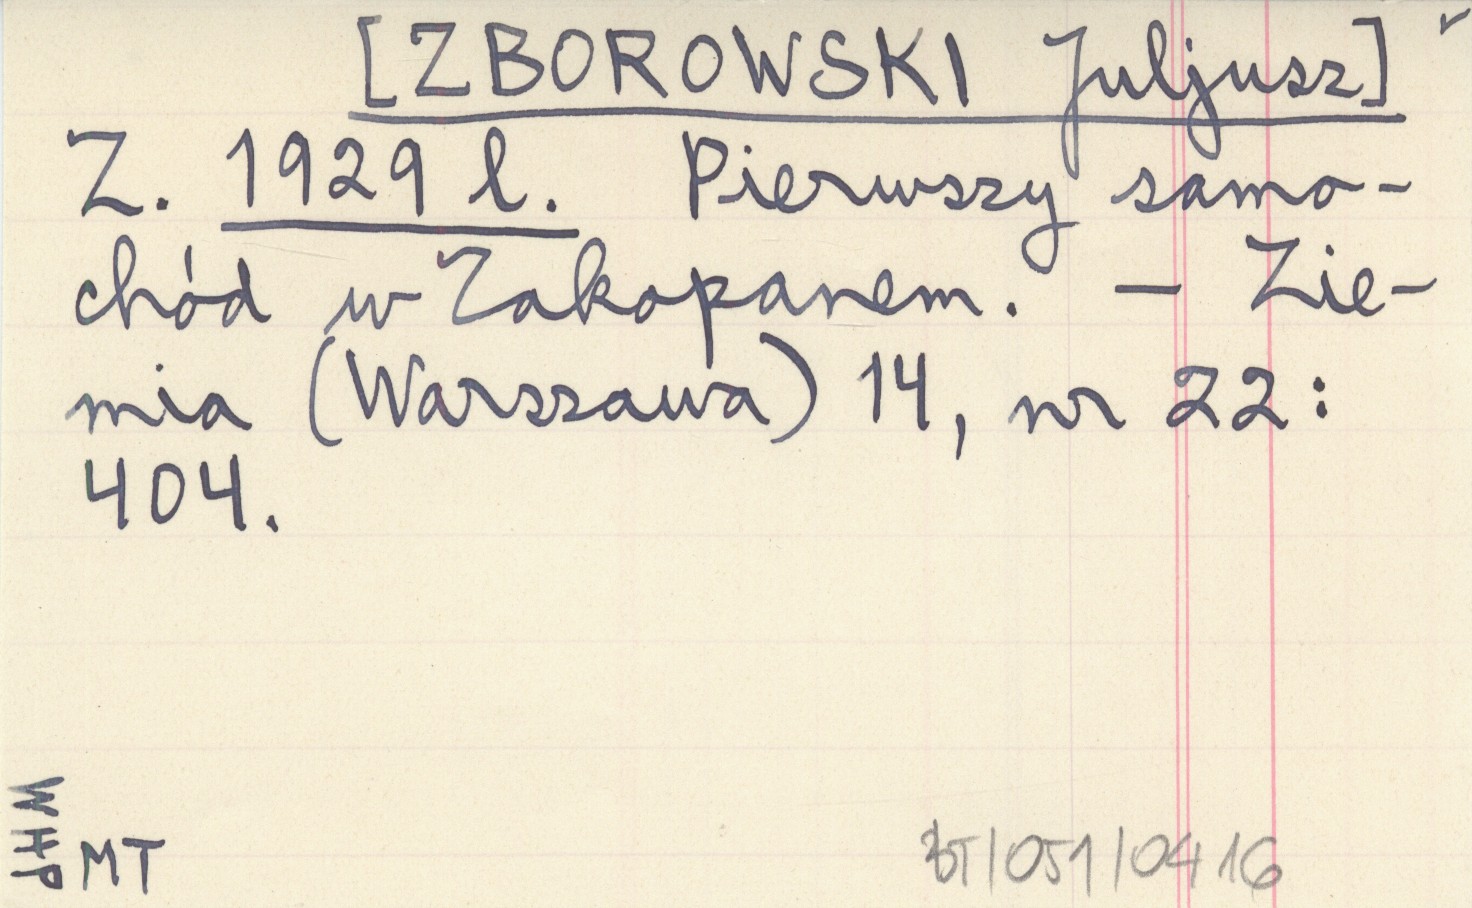 [ZBOROWSKI Juljusz]
Z. 1929 l. Pierwszy samo-
chód w Zakopanem. – Zie-
mia (Warszawa) 14, nr 22:
404.
WHP
MT
BT/051/0416